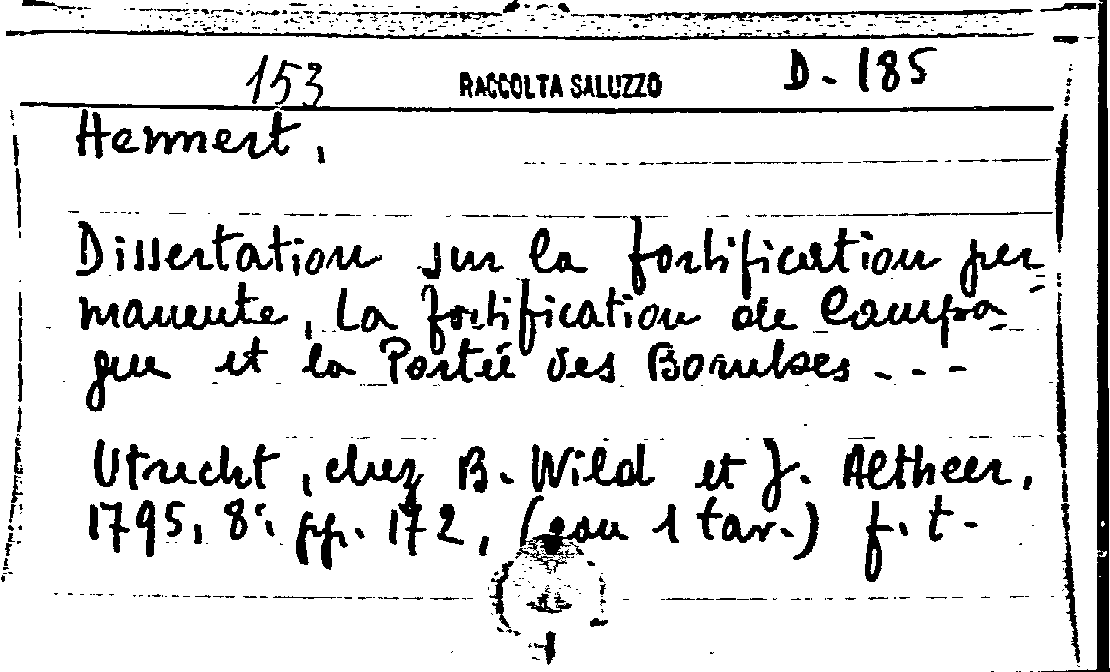 153 RACCOLTA SALUZZO D-185
Hennert,
Dissertation sur la fortification per
manente, la fortification de Campa-
gne et la Portée des Bombes ---
Utrecht, chez B. Wild et J. Altheer,
1795, 8°, pp. 172, (con 1 tav.) f.t.